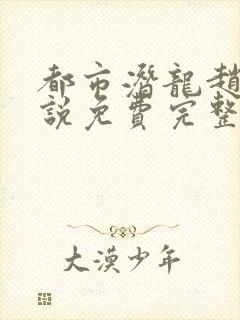 都市潛龍趙
說免費完整
大漠少年